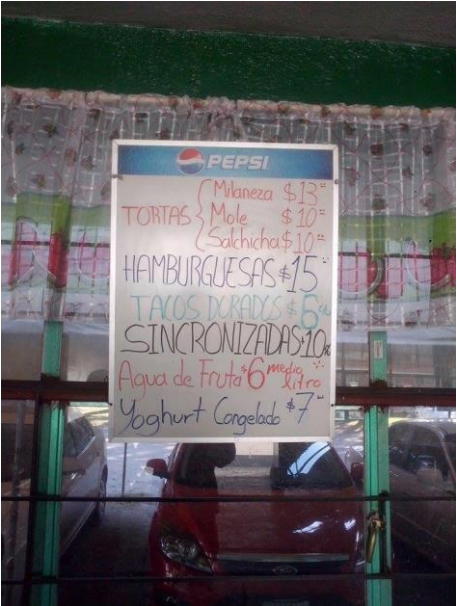 PEPSI
Milaneza $13.
TORTAS { Mole $10.
Salchicha $10.
HAMBURGUESAS $15
TACOS DORADOS $6
SINCRONIZADAS $10
Agua de Fruta $6 medio litro
Yoghurt Congelado $7